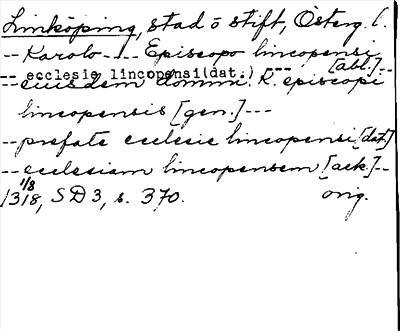 Linköping, stad o stift, Österg. l.
-- Karolo ---- Episcopo lincopensi [abl.]--
-- ecclesie lincopensi(dat.) ---
-- eiusdem domini K. episcopi
lincopensis [gen.] ---
-- prefate ecclesie lincopensi [dat.]
-- ecclesiam lincopensem [ack.]--
1/8 1318, SD 3, s. 370. orig.